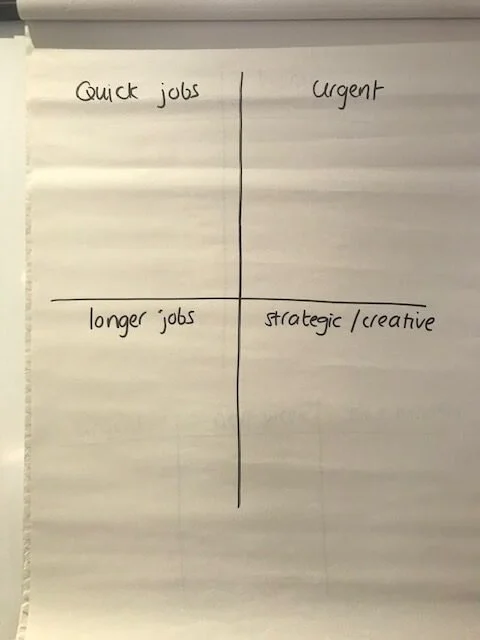 Quick jobs
urgent
longer jobs
strategic / creative